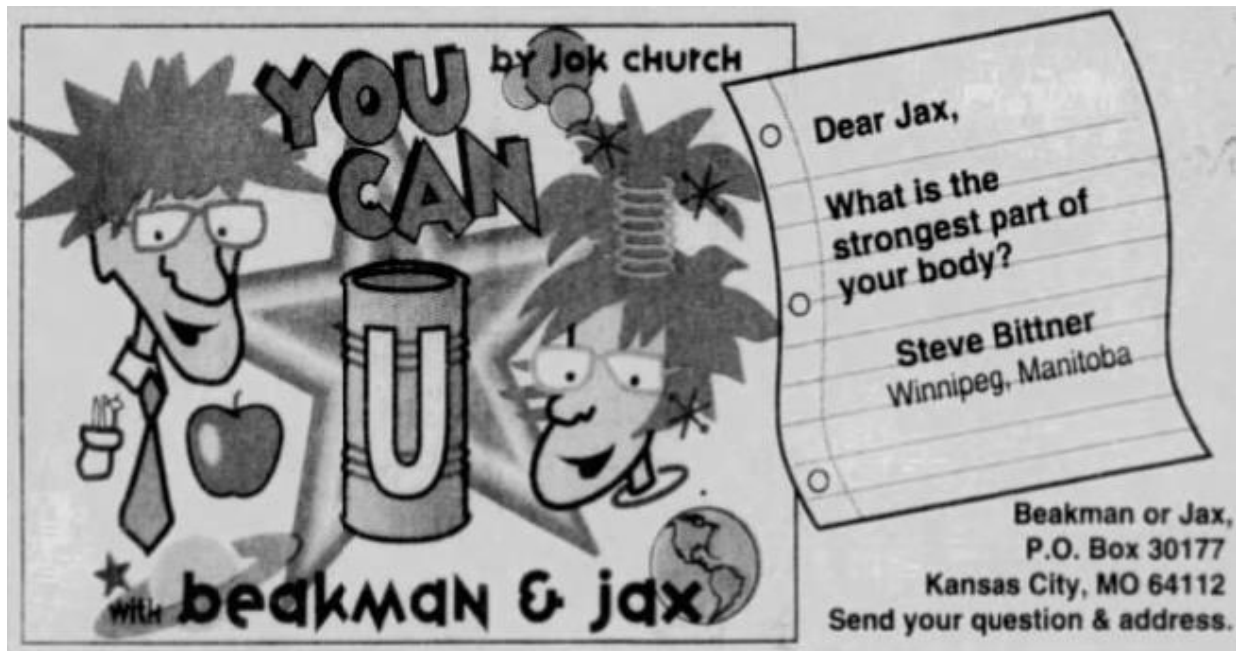 YOU
CAN
by Jok CHURCH
U
with beakman & jax
Dear Jax,
What is the
strongest part of
your body?
Steve Bittner
Winnipeg, Manitoba
Beakman or Jax,
P.O. Box 30177
Kansas City, MO 64112
Send your question & address.